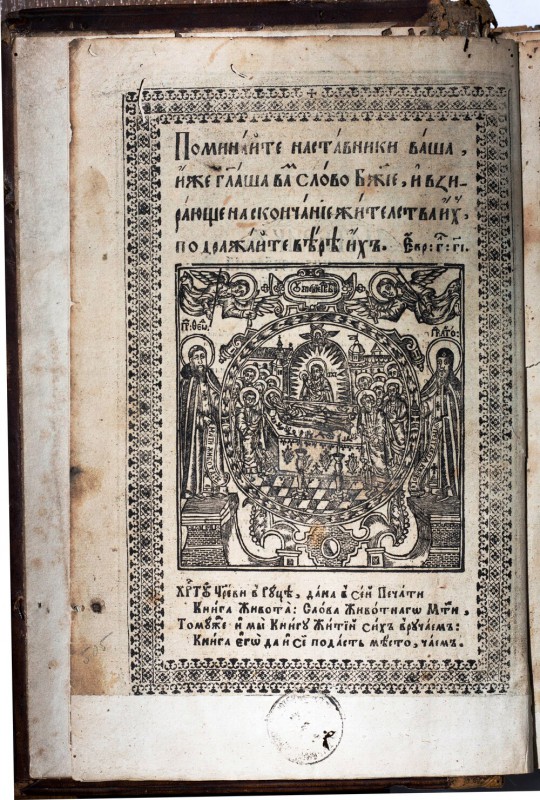 Помина́йте наста́вники ва́ша,
и́же гл҃аша ва́мъ сло́во Бж҃їе, и҆ взи-
ра́юще на сконча́нїе жи́телства и҆́хъ,
подража́йте вѣ́рѣ и҆́хъ. Є҆вр: гл҃: г҃і.
Пр: Ѳео:
Пр: Анто:
Хрⷭ҇ту̀ Цр҃еви в̾ Руцѣ, да́на в̾ се́й Печа́ти
Кни́га Живота̀: Сло́ва Живо́тнагѡ Мт҃и,
Томꙋ́же и҆ мы̀ Кни́гꙋ Жи́тїй си́хъ врꙋча́емъ:
Кни́га є҆гѡ̀ да и҆ сі́и пода́стъ мѣ́сто, ча́емъ.